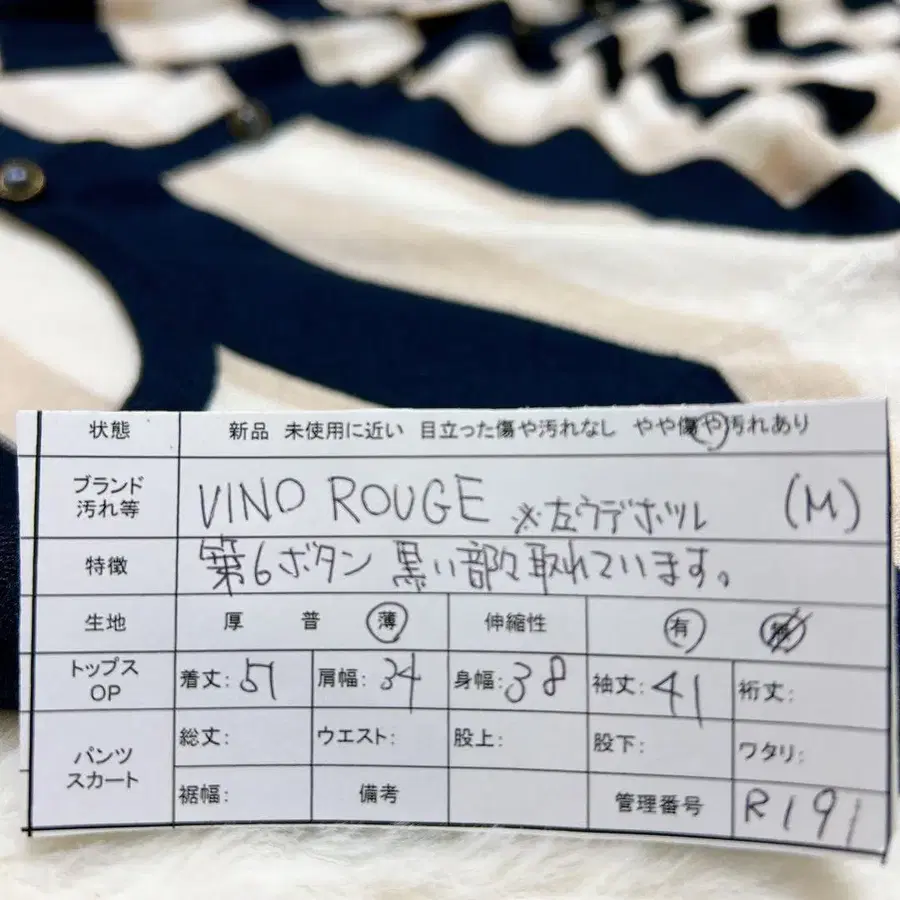 状態 新品 未使用に近い 目立った傷や汚れなし やや傷や汚れあり
ブランド
汚れ等 VINO ROUGE ※左ウデホツレ (M)
特徴 第6ボタン 黒い部分取れています。
生地 厚 普 薄 伸縮性 有 無
トップス
OP 着丈: 51 肩幅: 34 身幅: 38 袖丈: 41 裄丈:
パンツ
スカート 総丈: ウエスト: 股上: 股下: ワタリ:
裾幅: 備考 管理番号 R191